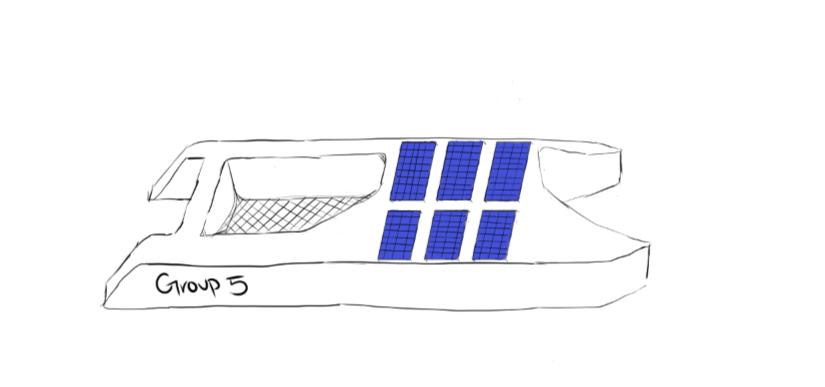 Group 5